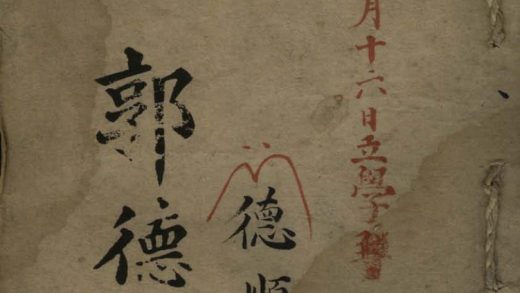 月十六日立學
德順
郭德